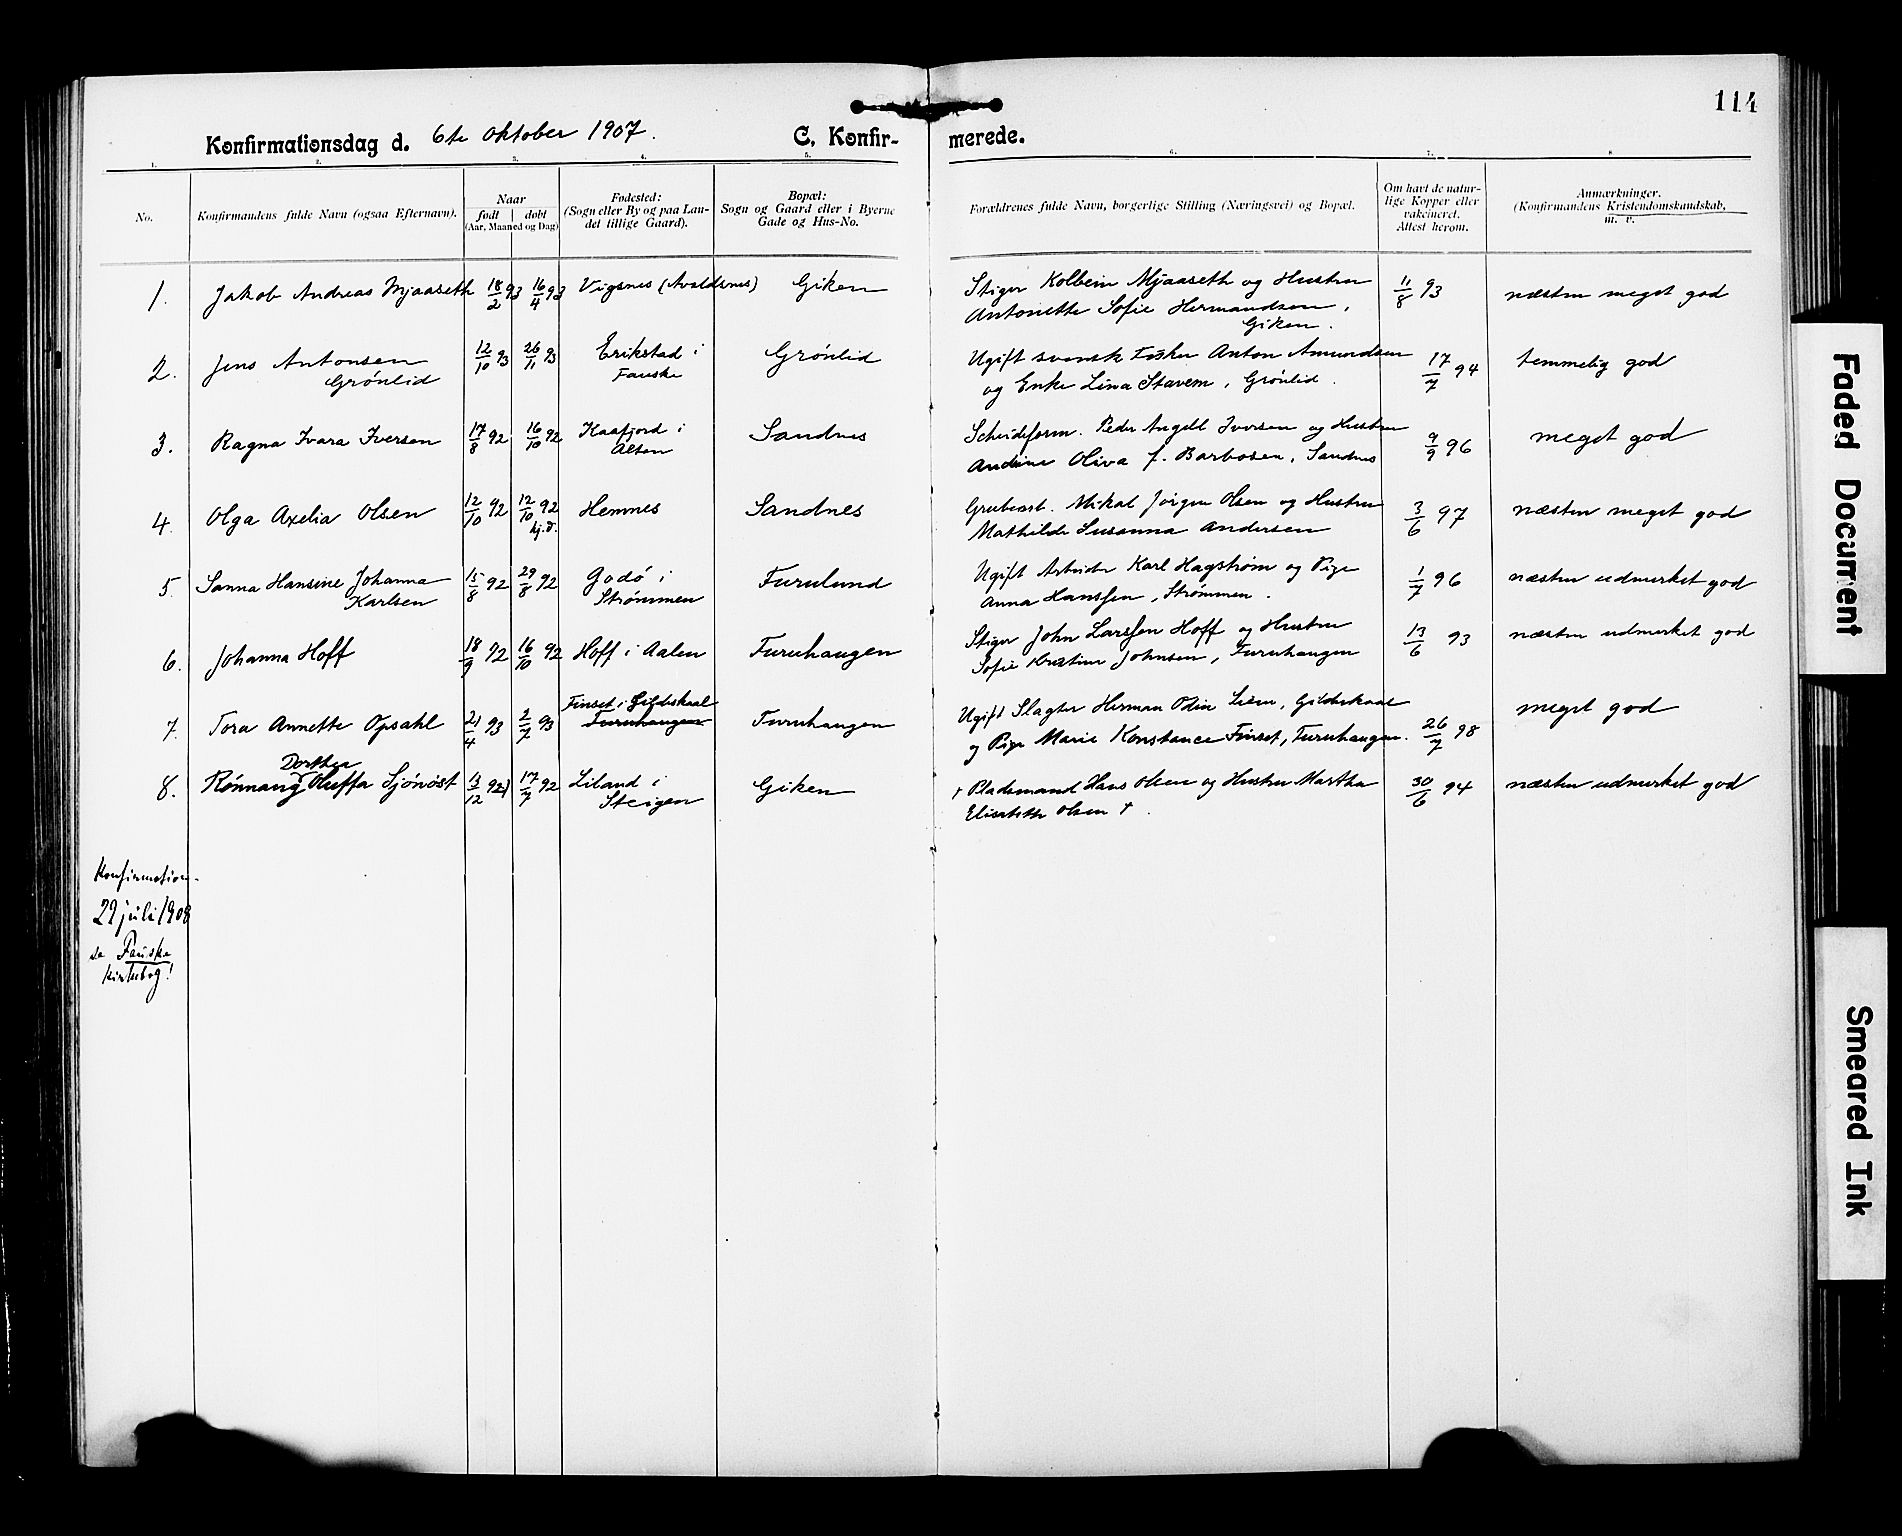 114
Konfirmationsdag d. 6te oktober 1907.
C. Konfirmerede.
1. 2. 3. 4. 5. 6. 7. 8
No.
Konfirmandens fulde Navn (ogsaa Efternavn).
Naar
født | døbt
(Aar, Maaned og Dag)
Fødested:
(Sogn eller By og paa Lan-
det tillige Gaard).
Bopæl:
Sogn og Gaard eller i Byerne
Gade og Hus-No.
Forældrenes fulde Navn, borgerlige Stilling (Næringsvei) og Bopæl.
Om havt de natur-
lige Kopper eller
vakcineret.
Attest herom.
Anmærkninger.
(Konfirmandens Kristendomskundskab,
m. v.
1. Jakob Andreas Mjaaseth 18/2 93 16/4 93 Vigsnes (Avaldsnes) Giken Stiger Kolbein Mjaaseth og Hustru 11/8 93 næsten meget god
Antonette Sofie Hermandsen,
Giken.
2. Jens Antonsen 12/10 93 26/11 93 Erikstad i Grönlid Ugift svensk Fisker Anton Amundsen 17/7 94 temmelig god
Grönlid Fauske og Enke Lina Stavem, Grönlid.
3. Ragna Ivara Iversen 17/8 92 16/10 92 Kaafjord i Sandnes Scheideform. Peder Angell Iversen og Hustru 9/9 96 meget god
Alten Andrine Oliva f. Barbosen, Sandnes
4. Olga Axelia Olsen 12/10 92 12/10 92 Hemnes Sandnes Grubearb. Mikal Jörgen Olsen og Hustru 3/6 97 næsten meget god
hj.d. Mathilde Susanna Andersen
5. Sanna Hansine Johanna 15/8 92 29/8 92 Godö i Furulund Ugift Arbeider Karl Hagstrøm og Pige 1/7 96 næsten udmerket god
Karlsen Strömmen Anna Hanssen, Strömmen.
6. Johanna Hoff 18/9 92 16/10 92 Hoff i Aalen Furuhaugen Stiger John Larssen Hoff og Hustru 13/6 93 næsten udmerket god
Sofie Kristine Johnsen, Furuhaugen
Finset i Gildeskaal
7. Tora Annette Opsahl 21/4 93 2/7 93 Furuhaugen Furuhaugen Ugift Slagter Herman Odin Lien, Gildeskaal meget god
og Pige Marie Konstance Finset, Furuhaugen. 26/7 98
Dorthea
8. Rönnaug Oluffa Sjönöst 13/12 92) 17/7 92 Liland i Giken † Pladsmand Hans Olsen og Hustru Martha 30/6 94 næsten udmerket god
Steigen Elisabeth Olsen †.
Konfirmation
29 juli 1908
se Fauske
kirkebog!
Faded Document
Smeared Ink